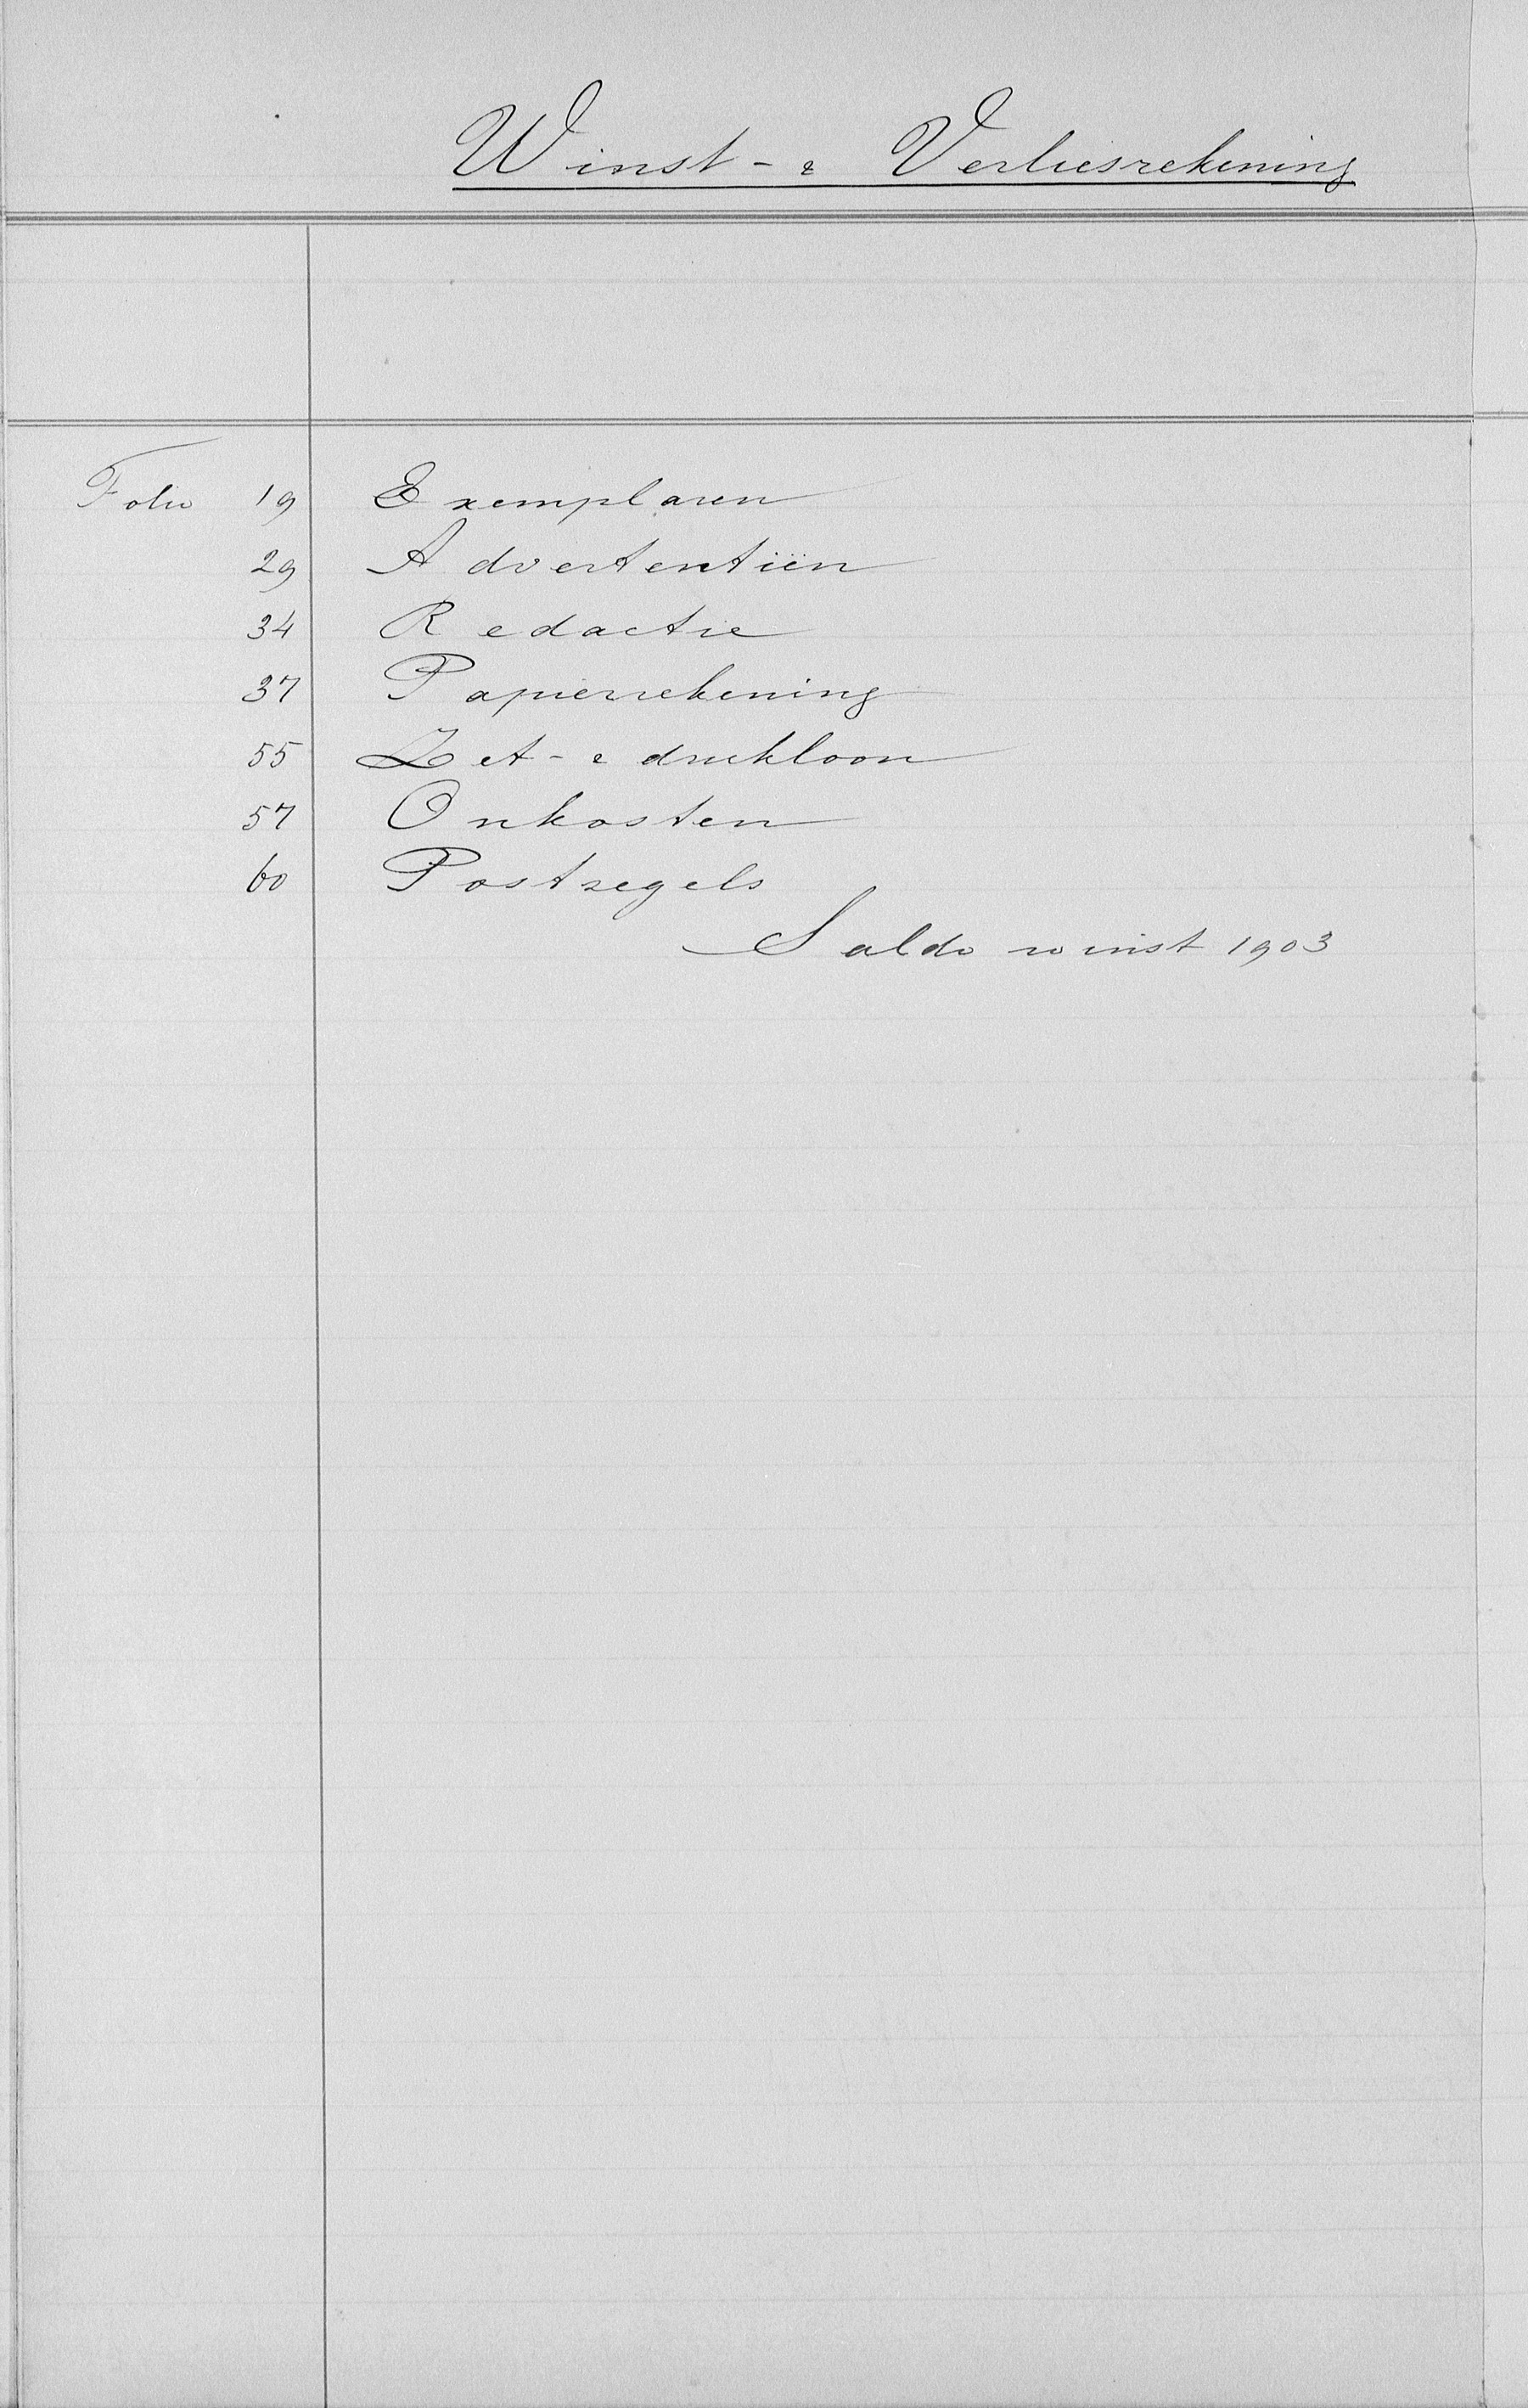 Winst- & Verliesrekening
Folio 19 Exemplaren
29 Advertentiën
34 Redactie
37 Papierrekening
55 Zet- & drukloon
57 Onkosten
60 Postzegels
Saldo winst 1903